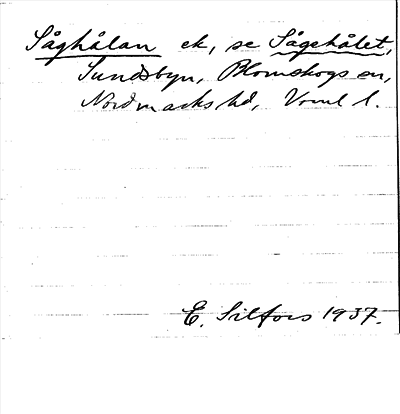 Såghålan ek, se Sågehålet,
Sundsbyn, Blomskogs sn,
Nordmarks hd, Vrml l.
E. Silfors 1937.